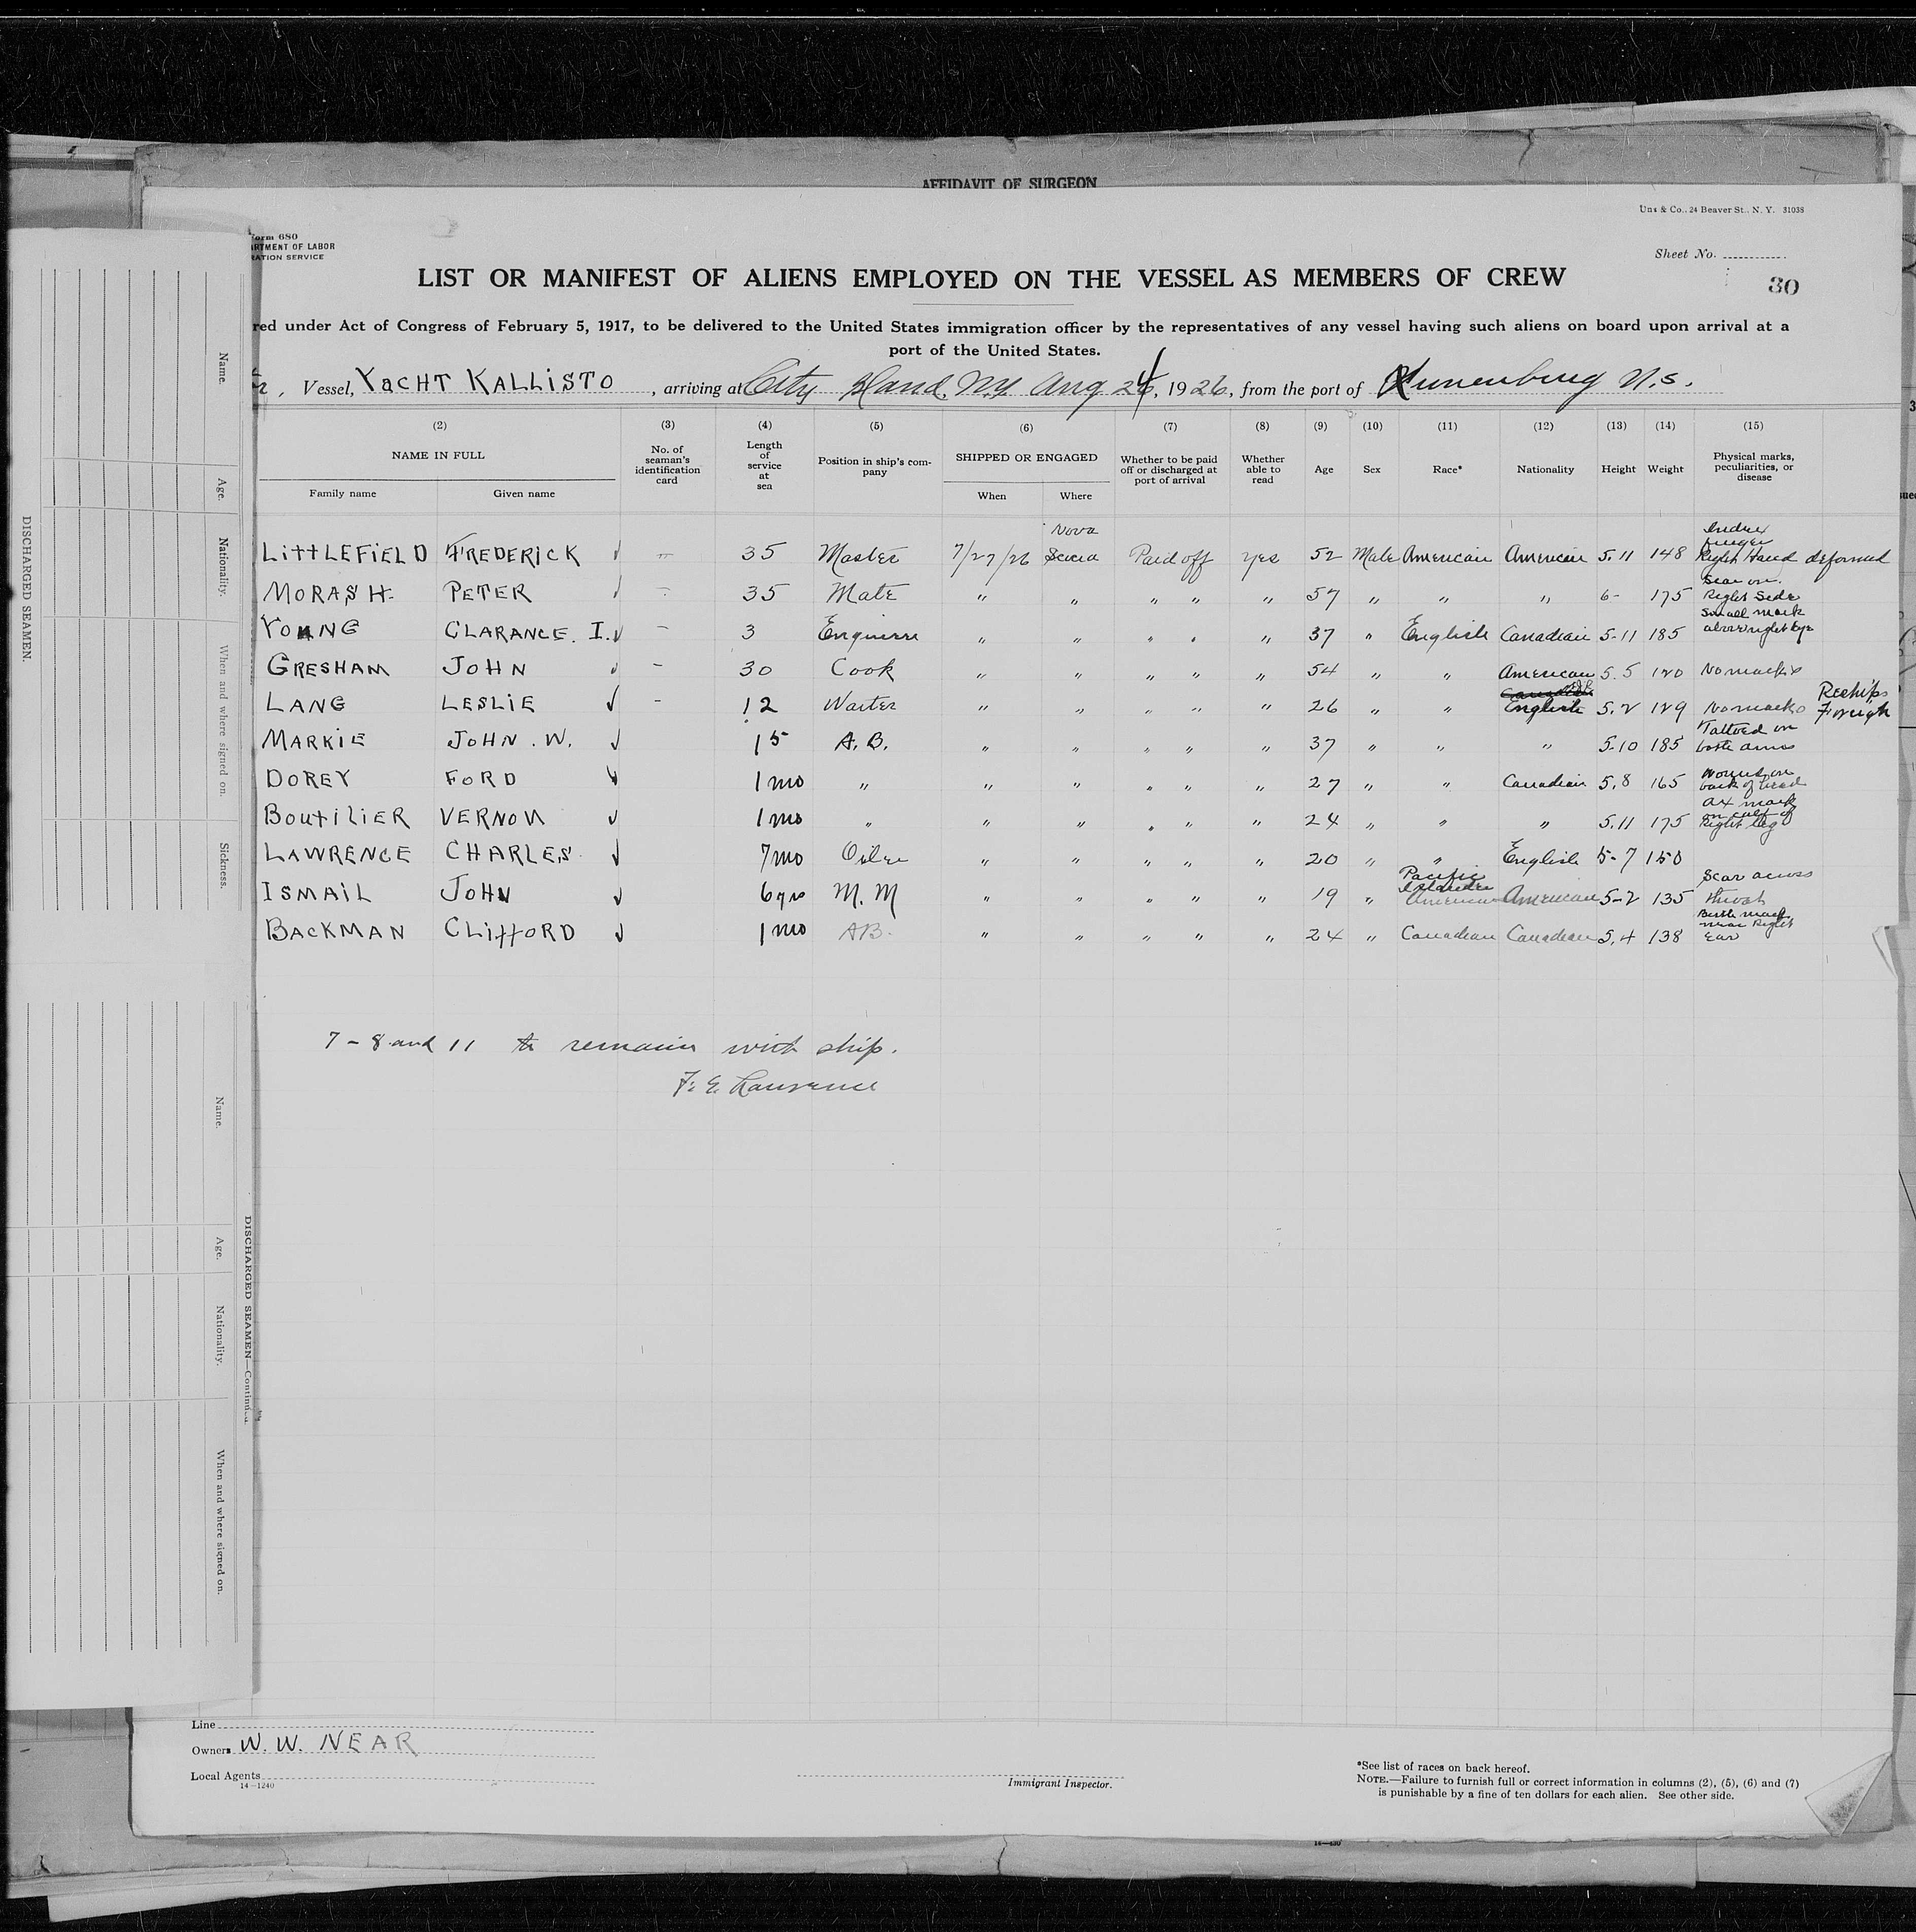 AFFIDAVIT OF SURGEON
Uns & Co., 24 Beaver St., N. Y. 31038
Form 680
RTMENT OF LABOR
RATION SERVICE
Sheet No.
30
LIST OR MANIFEST OF ALIENS EMPLOYED ON THE VESSEL AS MEMBERS OF CREW
red under Act of Congress of February 5, 1917, to be delivered to the United States immigration officer by the representatives of any vessel having such aliens on board upon arrival at a
port of the United States.
Vessel, YACHT KALLISTO, arriving at City Island, N.Y. Aug 24, 1926, from the port of Lunenburg N.S.
(2) (3) (4) (5) (6) (7) (8) (9) (10) (11) (12) (13) (14) (15)
NAME IN FULL No. of seaman's identification card Length of service at sea Position in ship's company SHIPPED OR ENGAGED Whether to be paid off or discharged at port of arrival Whether able to read Age Sex Race* Nationality Height Weight Physical marks, peculiarities, or disease
Family name Given name When Where
LITTLEFIELD FREDERICK √ — 35 Master 7/27/26 Nova Scocia Paid off yes 52 Male American American 5.11 148 Index finger Right Hand deformed
MORASH PETER √ — 35 Mate " " " " " 57 " " " 6- 175 Scar on Right Side
YOUNG CLARANCE. I. √ — 3 Enginerr " " " " " 37 " English Canadian 5-11 185 Small mark above right eye
GRESHAM JOHN √ — 30 Cook " " " " " 54 " " American 5.5 120 No marks
LANG LESLIE √ — 12 Waiter " " " " " 26 " " English 5.2 129 No marks Reships Foreign
MARKIE JOHN. W. √ 15 A.B. " " " " " 37 " " " 5-10 185 Tattoed on both arms
DOREY FORD √ 1 mo " " " " " " 27 " " Canadian 5.8 165 Wound on back of head
BOUTILIER VERNON √ 1 mo " " " " " " 24 " " " 5.11 175 ax mark on calf of Right leg
LAWRENCE CHARLES √ 7 mo Oiler " " " " " 20 " " English 5-7 150
ISMAIL JOHN √ 6 yrs M. M " " " " " 19 " Pacific Islander American American 5-2 135 Scar across throat
BACKMAN CLIFFORD √ 1 mo AB. " " " " " 24 " Canadian Canadian 5.4 138 Birth mark near Right Ear
7 - 8 and 11 to remain with ship.
F. E. Lawrence
Line
Owners W. W. NEAR
Local Agents
14—1240
Immigrant Inspector.
*See list of races on back hereof.
NOTE.—Failure to furnish full or correct information in columns (2), (5), (6) and (7)
is punishable by a fine of ten dollars for each alien. See other side.
DISCHARGED SEAMEN.
Name.
Age.
Nationality.
When and where signed on.
Sickness.
DISCHARGED SEAMEN—Continued.
Name.
Age.
Nationality.
When and where signed on.